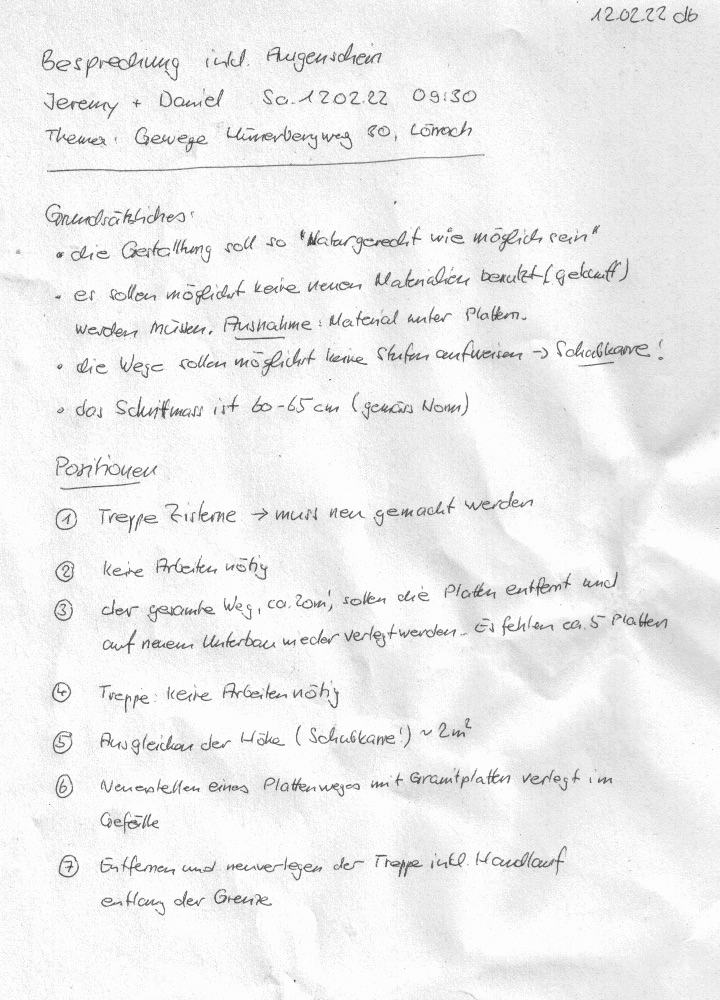 12.02.22 db
Besprechung inkl. Augenschein
Jeremy + Daniel Sa. 12.02.22 09:30
Thema: Gewege Hünerbergweg 80, Lörrach
Grundsätzliches:
• die Gestaltung soll so "Naturgerecht wie möglich sein"
• es sollen möglichst keine neuen Materialien benutzt (gekauft)
werden müssen. Ausnahme: Material unter Platten.
• die Wege sollen möglichst keine Stufen aufweisen → Schubkarre!
• das Schrittmass ist 60-65 cm (gemäss Norm)
Positionen
① Treppe Zisterne → muss neu gemacht werden
② keine Arbeiten nötig
③ der gesamte Weg, ca. 20m', sollen die Platten entfernt und
auf neuem Unterbau wieder verlegt werden. Es fehlen ca. 5 Platten
④ Treppe: keine Arbeiten nötig
⑤ Ausgleichen der Höhe (Schubkarre!) ~ 2m²
⑥ Neuerstellen eines Plattenweges mit Granitplatten verlegt im
Gefälle
⑦ Entfernen und neuverlegen der Treppe inkl. Handlauf
entlang der Grenze